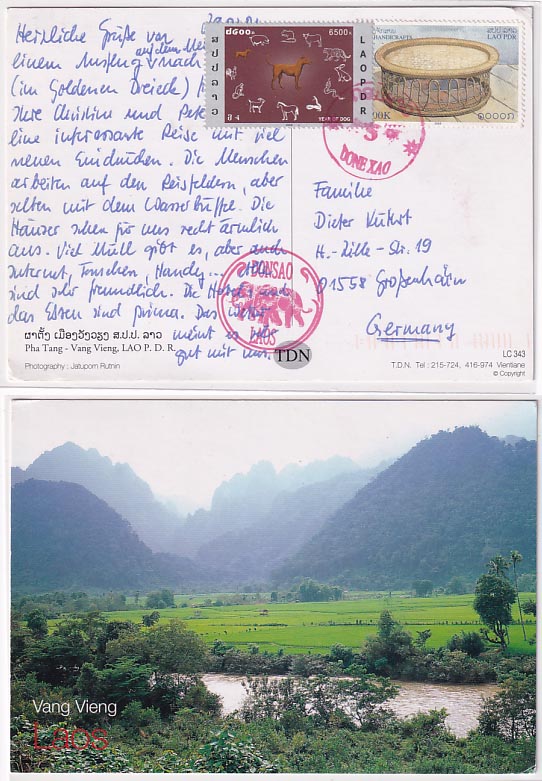 Herzliche Grüße von
auf dem
einem Ausflug nach
(im Goldenen Dreieck)
Ihre Christine und Pete
eine interessante Reise mit viel
neuen Eindrücken. Die Menschen
arbeiten auf den Reisfeldern, aber
selten mit dem Wasserbüffel. Die
Häuser sehen für uns recht ärmlich
aus. Viel Müll gibt es, aber auch
Internet, Handy...
sind sehr freundlich. Die Hotels und
das Essen sind prima. Das Wetter
meint es
gut mit uns.
ຜາຕັ້ງ ເມືອງວັງວຽງ ສ.ປ.ປ. ລາວ
Pha Tang - Vang Vieng, LAO P. D. R.
Photography : Jatuporn Rutnin
TDN
໖໕໐໐
6500K
ສ ປ ປ ລາວ
LAO P D R
YEAR OF DOG
ສປປລາວ LAO PDR
HANDICRAFTS
໑໐໐໐ກ
DONE XAO
DONSAO
LAOS
Familie
Dieter
H.-Zille-Str. 19
01558 Großenhain
Germany
LC 343
T.D.N. Tel : 215-724, 416-974 Vientiane
© Copyright
Vang Vieng
Laos